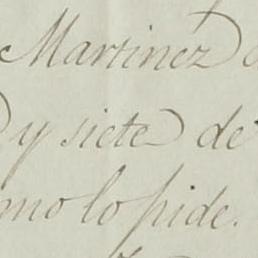 Martinez
y siete de
mo lo pide.